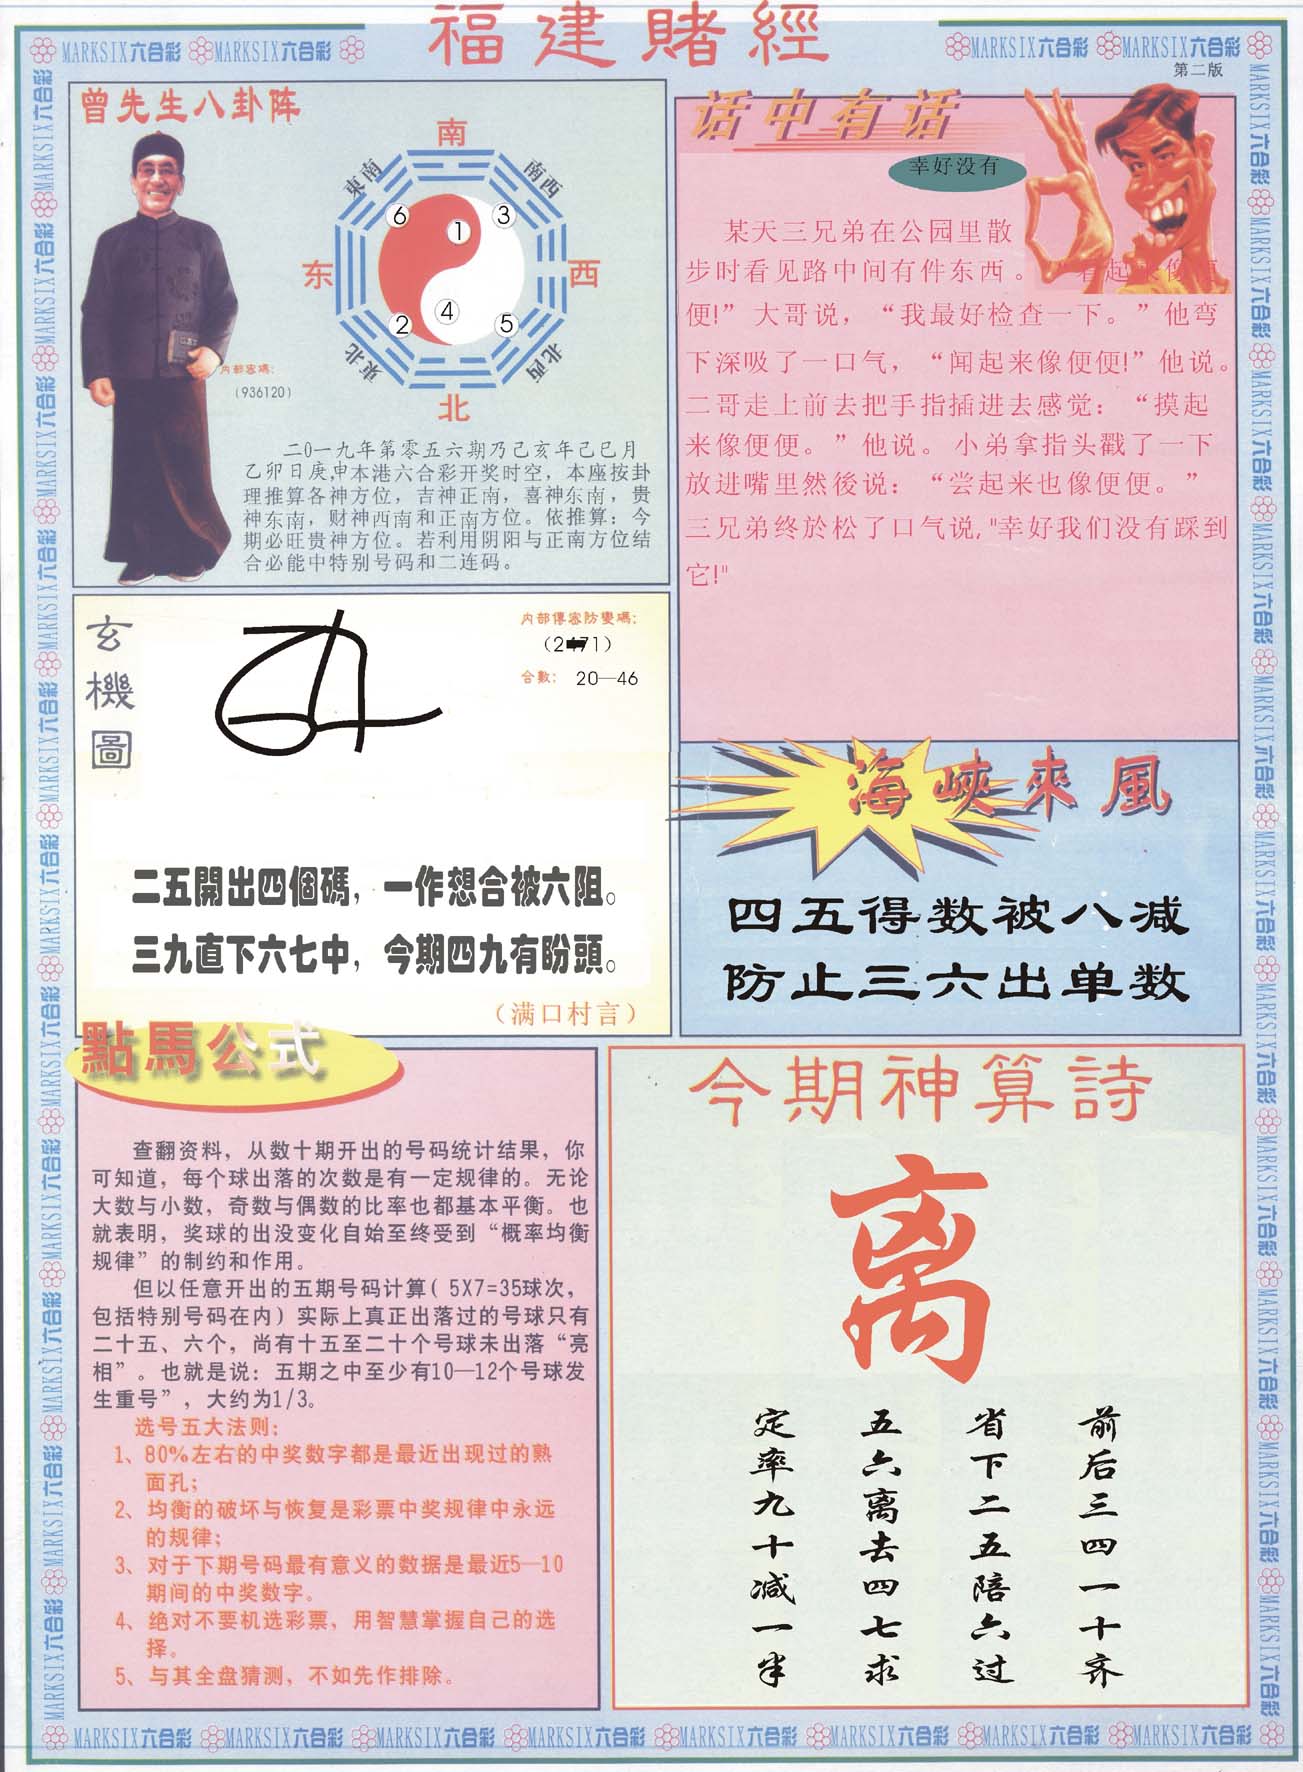 福建賭經
MARKSIX六合彩 MARKSIX六合彩
MARKSIX六合彩 MARKSIX六合彩
第二版
曾先生八卦阵
南
東南
南西
6
3
1
东
西
4
2
5
東北
北西
北
内部密碼:
(936120)
二0一九年第零五六期乃己亥年己巳月
乙卯日庚,申本港六合彩开奖时空，本座按卦
理推算各神方位，吉神正南，喜神东南，贵
神东南，财神西南和正南方位。依推算：今
期必旺贵神方位。若利用阴阳与正南方位结
合必能中特别号码和二连码。
话中有话
幸好没有
某天三兄弟在公园里散
步时看见路中间有件东西。“看起来像便
便!”大哥说，“我最好检查一下。”他弯
下深吸了一口气，“闻起来像便便!”他说。
二哥走上前去把手指插进去感觉：“摸起
来像便便。”他说。小弟拿指头戳了一下
放进嘴里然後说：“尝起来也像便便。”
三兄弟终於松了口气说,"幸好我们没有踩到
它!"
玄機圖
内部傳密防變碼:
合數: 20—46
二五開出四個碼，一作想合被六阻。
三九直下六七中，今期四九有盼頭。
（满口村言）
海峽來風
四五得数被八减
防止三六出单数
點馬公式
查翻资料，从数十期开出的号码统计结果，你
可知道，每个球出落的次数是有一定规律的。无论
大数与小数，奇数与偶数的比率也都基本平衡。也
就表明，奖球的出没变化自始至终受到“概率均衡
规律”的制约和作用。
但以任意开出的五期号码计算( 5X7=35球次，
包括特别号码在内）实际上真正出落过的号球只有
二十五、六个，尚有十五至二十个号球未出落“亮
相”。也就是说：五期之中至少有10—12个号球发
生重号”，大约为1/3。
选号五大法则:
1、80%左右的中奖数字都是最近出现过的熟
面孔;
2、均衡的破坏与恢复是彩票中奖规律中永远
的规律;
3、对于下期号码最有意义的数据是最近5—10
期间的中奖数字。
4、绝对不要机选彩票，用智慧掌握自己的选
择。
5、与其全盘猜测，不如先作排除。
今期神算詩
离
前后三四一十齐
省下二五陪六过
五六离去四七求
定率九十减一半
MARKSIX六合彩 MARKSIX六合彩 MARKSIX六合彩 MARKSIX六合彩 MARKSIX六合彩 MARKSIX六合彩 MARKSIX六合彩 MARKSIX六合彩